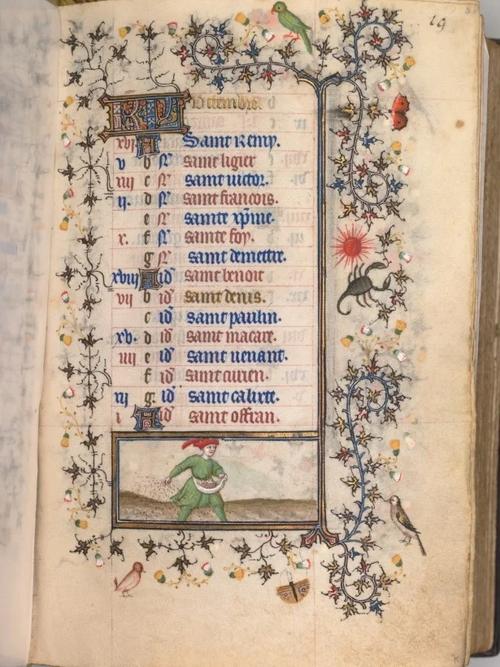 19
KL Octembre
xvi A Saint Remy.
v b N saint ligier
xiii c N saint victor.
ii. d N saint francois.
e N sainte xpine.
x. f N sainte foy.
g N saint demettre.
xviii A id' saint benoit
vii b id' saint denis.
c id' saint paulin.
xv. d id' saint macare.
iiii e id' saint venant.
f id' saint
xii g. id' saint calixte.
i A id' saint offran.